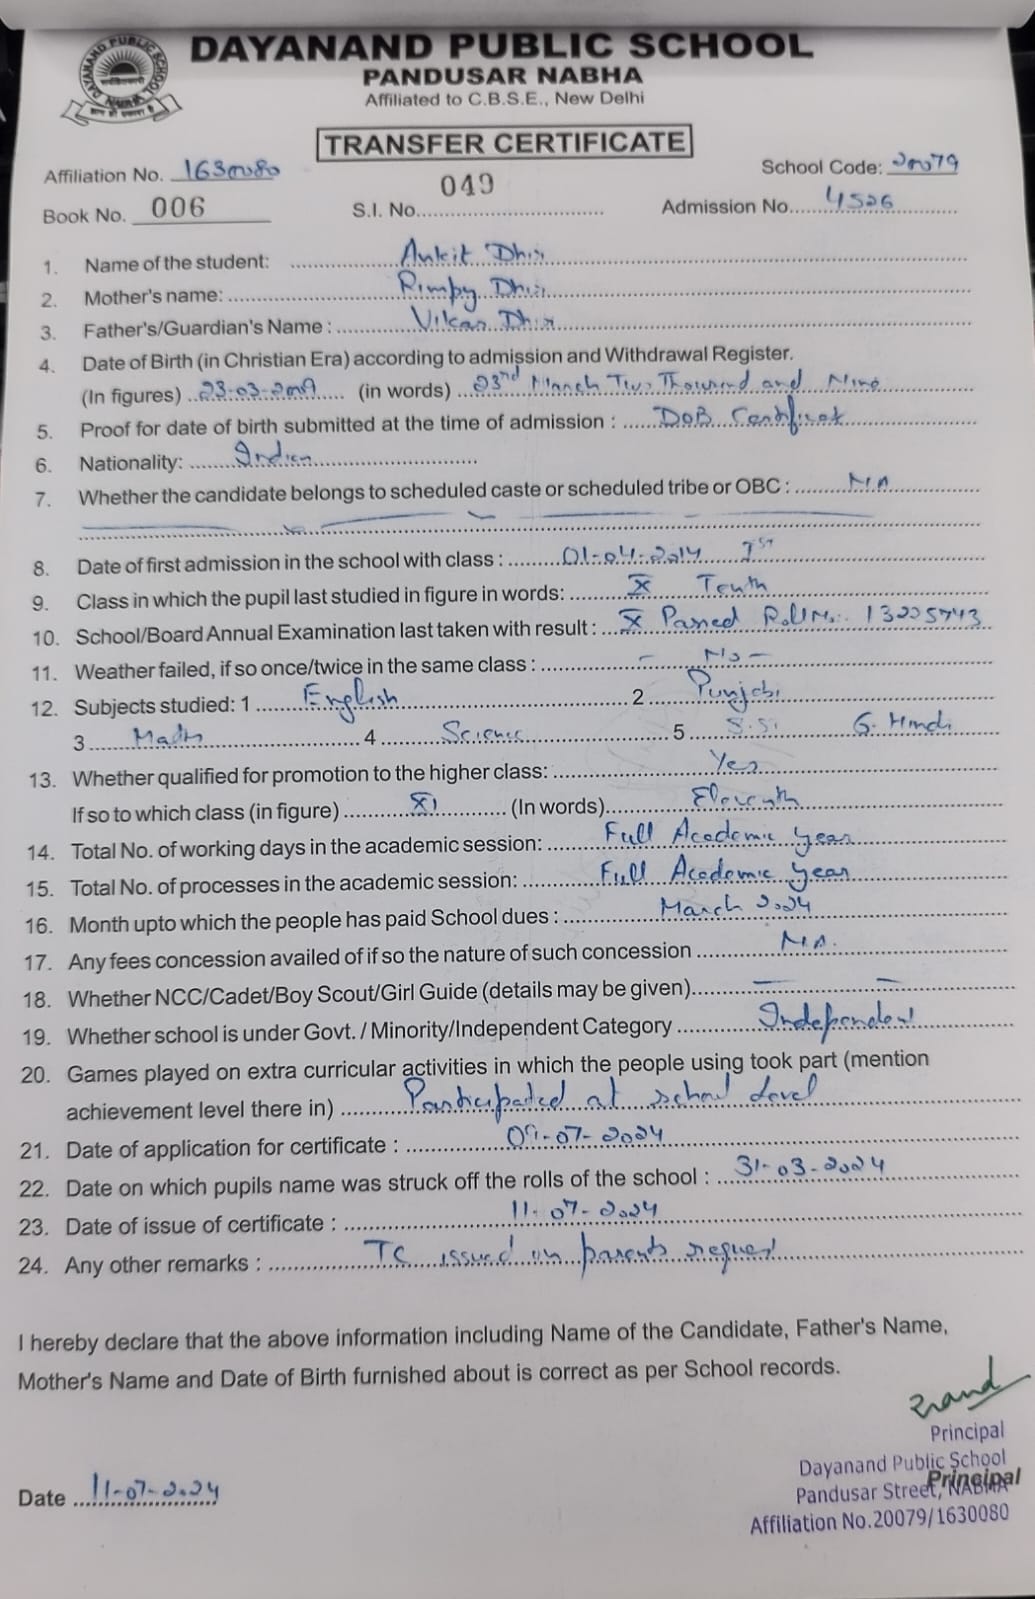 DAYANAND PUBLIC SCHOOL
PANDUSAR NABHA
Affiliated to C.B.S.E., New Delhi
TRANSFER CERTIFICATE
Affiliation No. 1630080 School Code: 20079
Book No. 006 S.I. No. 049 Admission No. 4526
1. Name of the student: Ankit Dhir
2. Mother's name: Rimpy Dhir
3. Father's/Guardian's Name : Vikas Dhir
4. Date of Birth (in Christian Era) according to admission and Withdrawal Register.
(In figures) 23-03-2009 (in words) 23rd March Two Thousand and Nine
5. Proof for date of birth submitted at the time of admission : DOB Certificat
6. Nationality: Indian
7. Whether the candidate belongs to scheduled caste or scheduled tribe or OBC : N.A
8. Date of first admission in the school with class : 01-04-2014 Ist
9. Class in which the pupil last studied in figure in words: X Tenth
10. School/Board Annual Examination last taken with result : X Passed Roll No. 13225743
11. Weather failed, if so once/twice in the same class : - No -
12. Subjects studied: 1 English 2 Punjabi
3 Math 4 Science 5 S.St G. Hindi
13. Whether qualified for promotion to the higher class: Yes
If so to which class (in figure) XI (In words) Eleventh
14. Total No. of working days in the academic session: Full Academic Year
15. Total No. of processes in the academic session: Full Academic Year
16. Month upto which the people has paid School dues : March 2024
17. Any fees concession availed of if so the nature of such concession N.A.
18. Whether NCC/Cadet/Boy Scout/Girl Guide (details may be given) — —
19. Whether school is under Govt. / Minority/Independent Category Independent
20. Games played on extra curricular activities in which the people using took part (mention
achievement level there in) Participated at school level
21. Date of application for certificate : 09-07-2024
22. Date on which pupils name was struck off the rolls of the school : 31-03-2024
23. Date of issue of certificate : 11-07-2024
24. Any other remarks : TC issued on parents request
I hereby declare that the above information including Name of the Candidate, Father's Name,
Mother's Name and Date of Birth furnished about is correct as per School records.
Principal
Dayanand Public School
Principal
Pandusar Street, NABHA
Affiliation No.20079/1630080
Date 11-07-2024